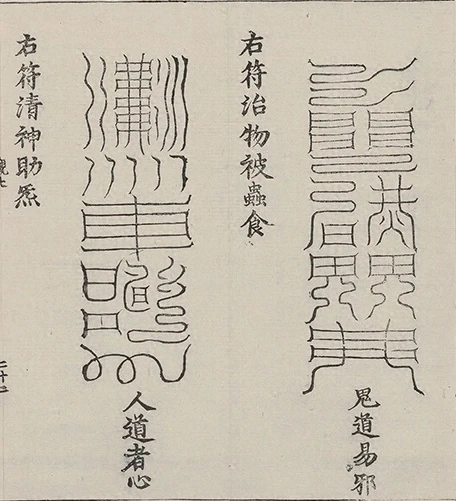 鬼道易邪
右符治物被蟲食
人道者心
右符清神助炁